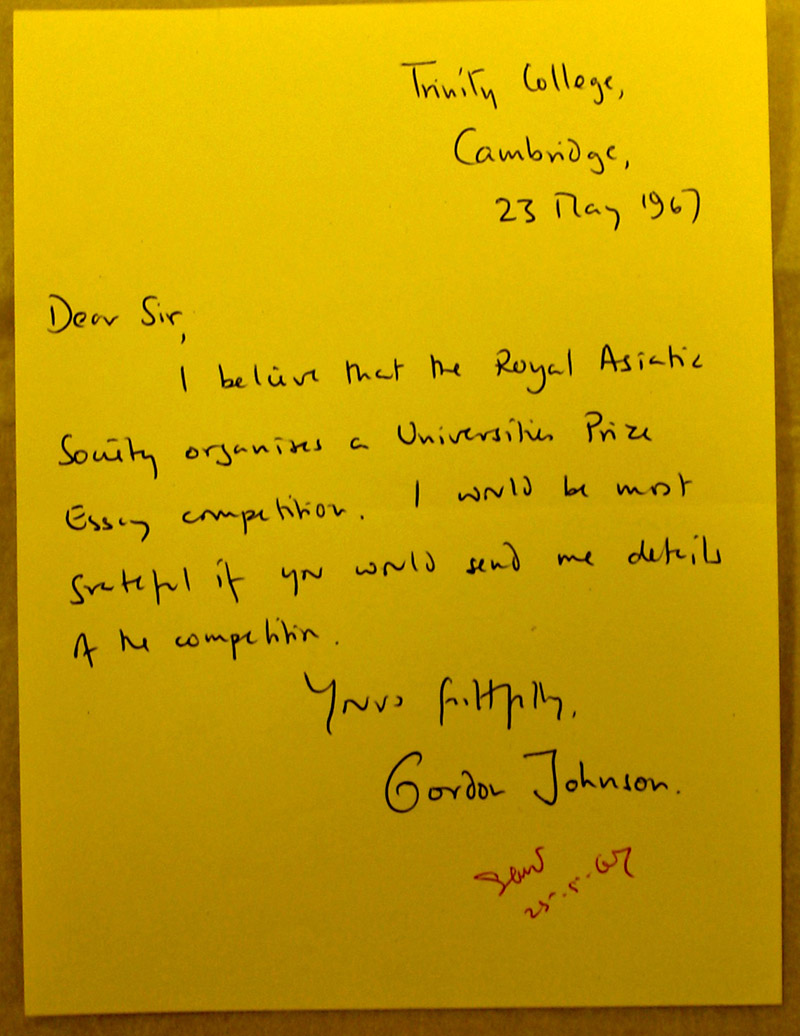 Trinity College,
Cambridge,
23 May 1967
Dear Sir,
I believe that the Royal Asiatic
Society organises a Universities Prize
Essay competition. I would be most
grateful if you would send me details
of the competition.
Yours faithfully,
Gordon Johnson.
Sent
25-5-67